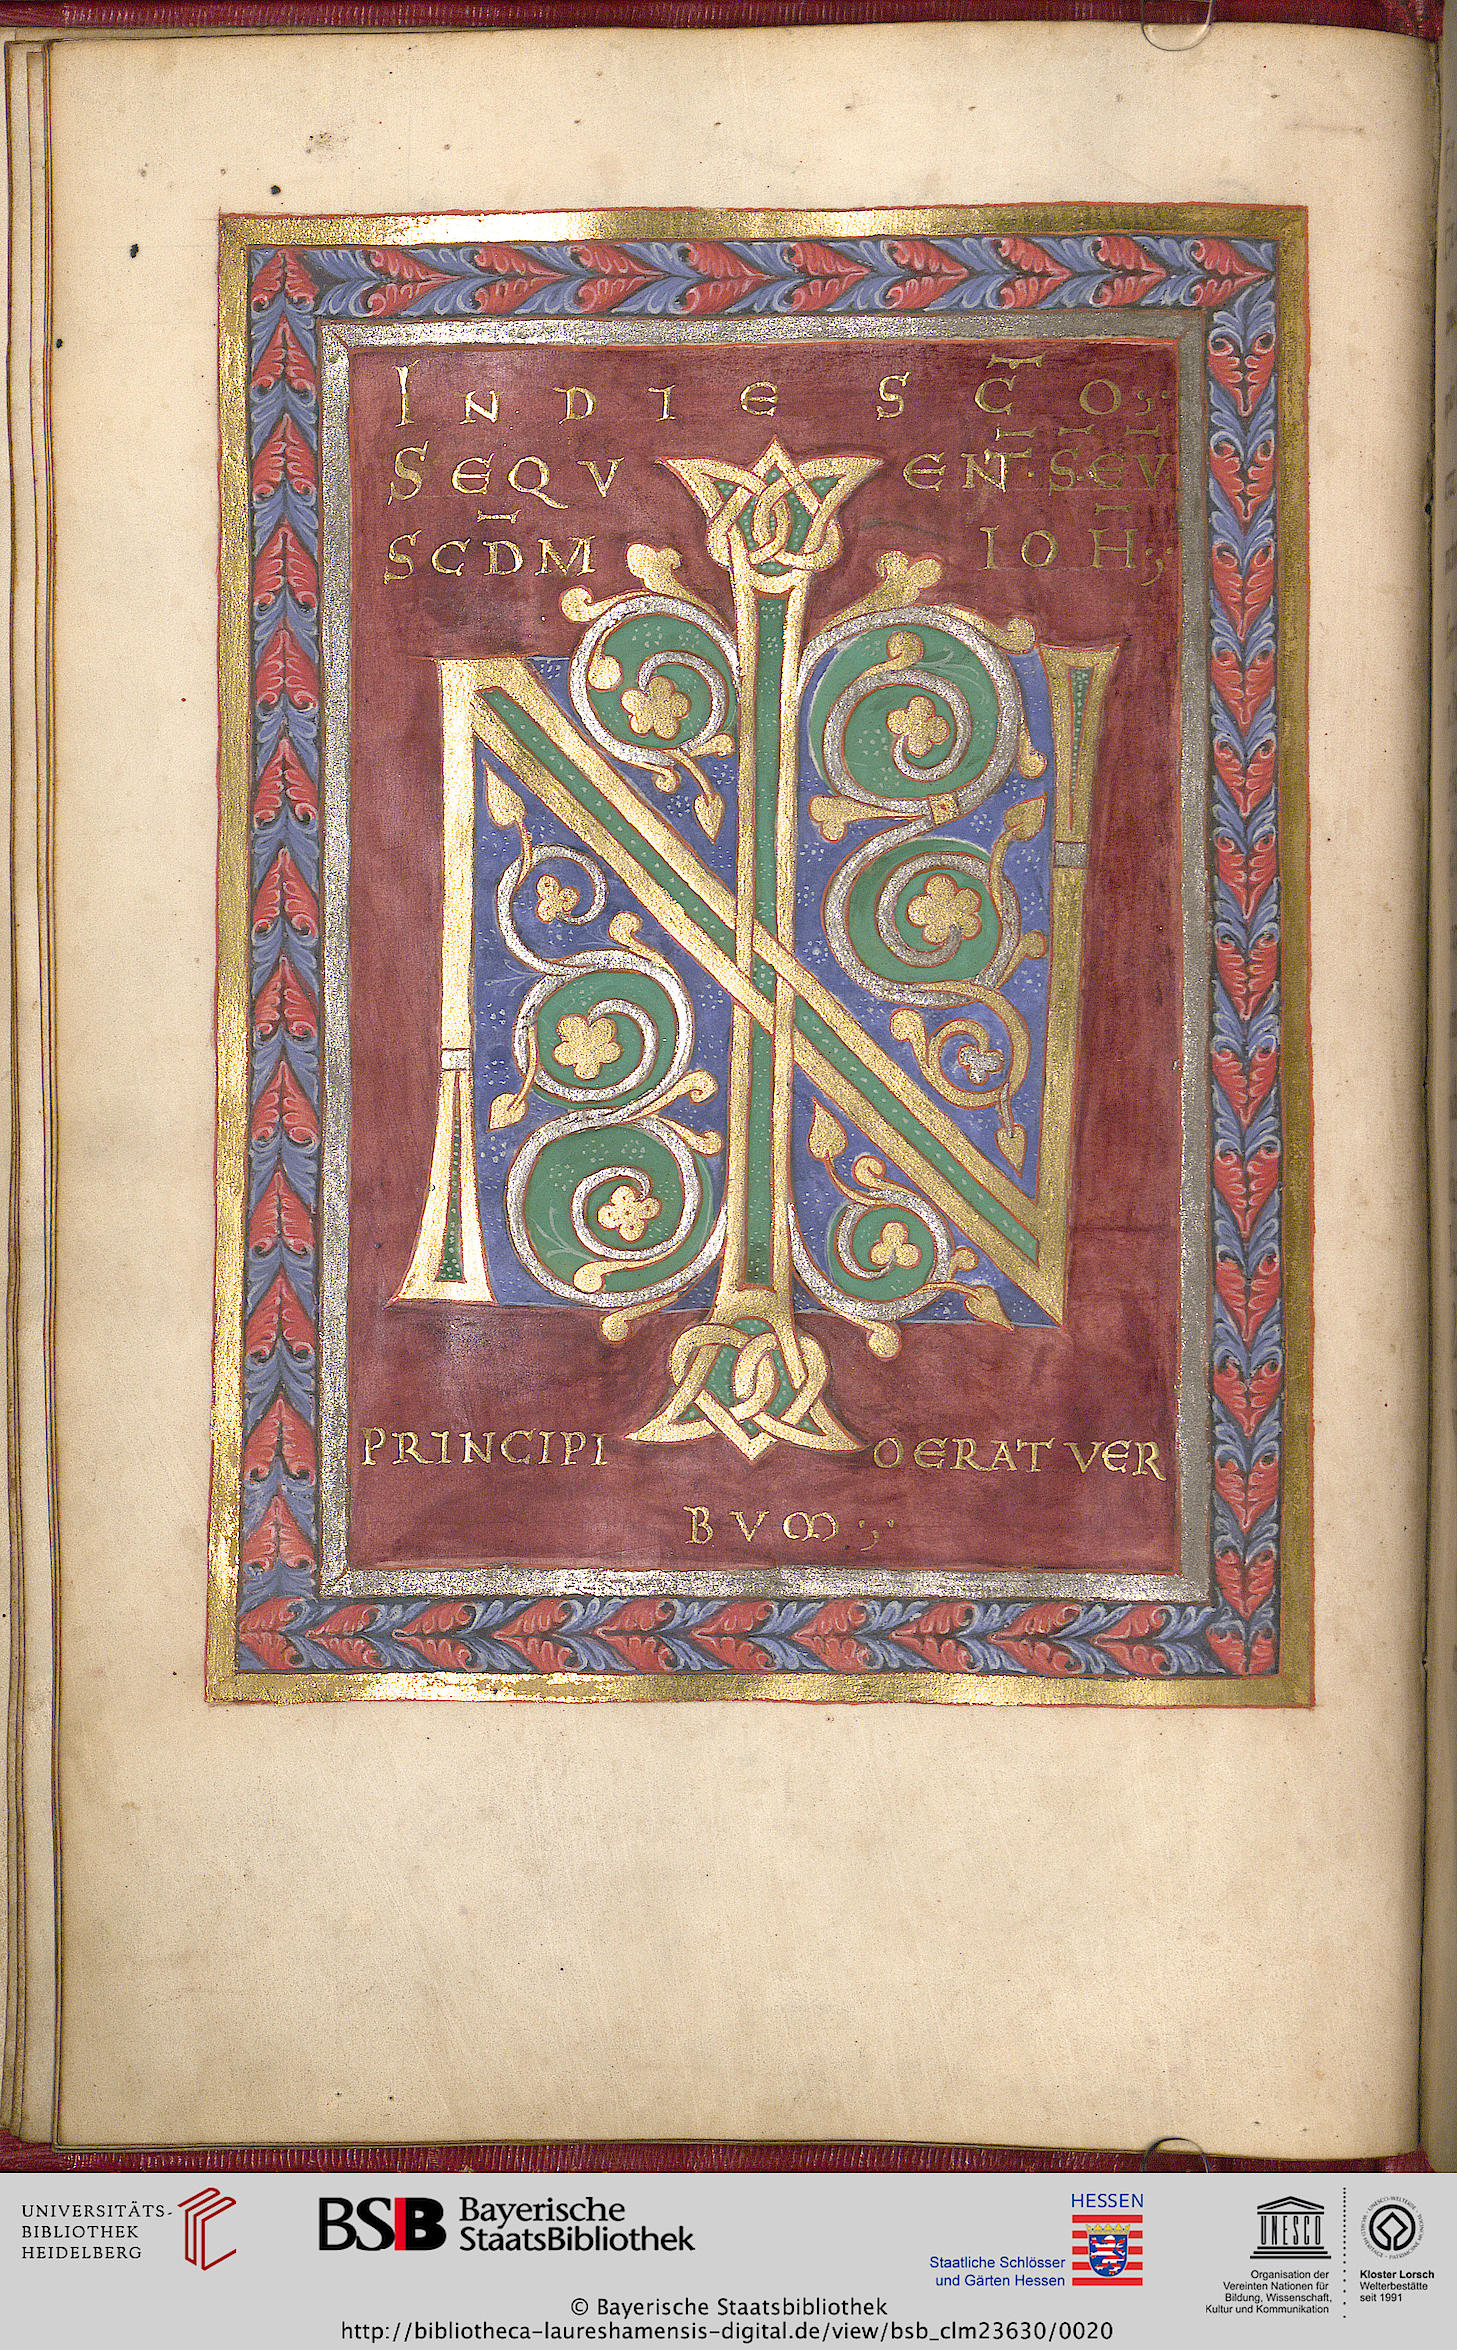 IN DIE SC̄O
SEQUENT̄. S. ĒV̄
SCD̄M IOH̄
IN
PRINCIPIO ERAT VER
BVM
UNIVERSITÄTS-
BIBLIOTHEK
HEIDELBERG
BSB Bayerische
StaatsBibliothek
HESSEN
Staatliche Schlösser
und Gärten Hessen
UNESCO
Organisation der
Vereinten Nationen für
Bildung, Wissenschaft,
Kultur und Kommunikation
Kloster Lorsch
Welterbestätte
seit 1991
© Bayerische Staatsbibliothek
http://bibliotheca-laureshamensis-digital.de/view/bsb_clm23630/0020